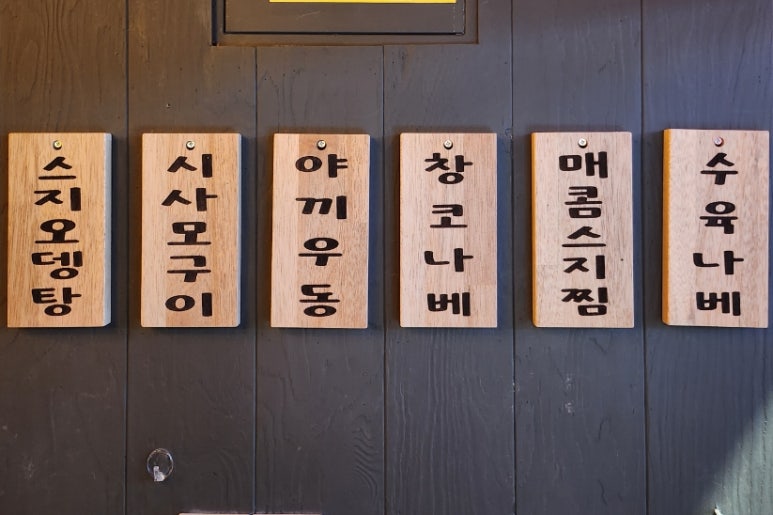 스지오뎅탕
시사모구이
야끼우동
창코나베
매콤스지찜
수육나베